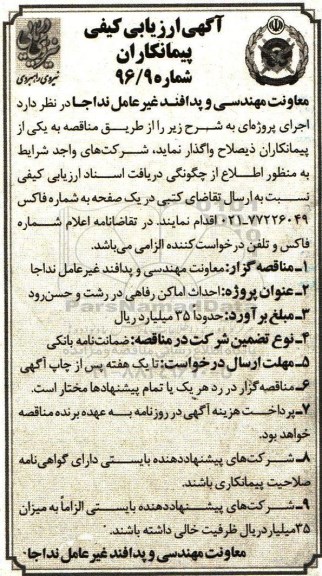 آگهی ارزیابی کیفی
پیمانکاران
شماره ۹۶/۹
نیروی راهبردی
معاونت مهندسی و پدافند غیرعامل نداجا در نظر دارد
اجرای پروژه‌ای به شرح زیر را از طریق مناقصه به یکی از
پیمانکاران ذیصلاح واگذار نماید، شرکت‌های واجد شرایط
به منظور اطلاع از چگونگی دریافت اسناد ارزیابی کیفی
نسبت به ارسال تقاضای کتبی در یک صفحه به شماره فاکس
۷۷۲۲۶۰۴۹-۰۲۱ اقدام نمایند. در تقاضانامه اعلام شماره
فاکس و تلفن درخواست‌کننده الزامی می‌باشد.
۱ـ مناقصه گزار: معاونت مهندسی و پدافند غیرعامل نداجا
۲ـ عنوان پروژه: احداث اماکن رفاهی در رشت و حسن‌رود
۳ـ مبلغ برآورد: حدوداً ۳۵ میلیارد ریال
۴ـ نوع تضمین شرکت در مناقصه: ضمانت‌نامه بانکی
۵ـ مهلت ارسال درخواست: تا یک هفته پس از چاپ آگهی
۶ـ مناقصه‌گزار در رد هر یک یا تمام پیشنهادها مختار است.
۷ـ پرداخت هزینه آگهی در روزنامه به عهده برنده مناقصه
خواهد بود.
۸ـ شرکت‌های پیشنهاددهنده بایستی دارای گواهی‌نامه
صلاحیت پیمانکاری باشند.
۹ـ شرکت‌های پیشنهاددهنده بایستی الزاماً به میزان
۳۵ میلیارد ریال ظرفیت خالی داشته باشند.
معاونت مهندسی و پدافند غیرعامل نداجا